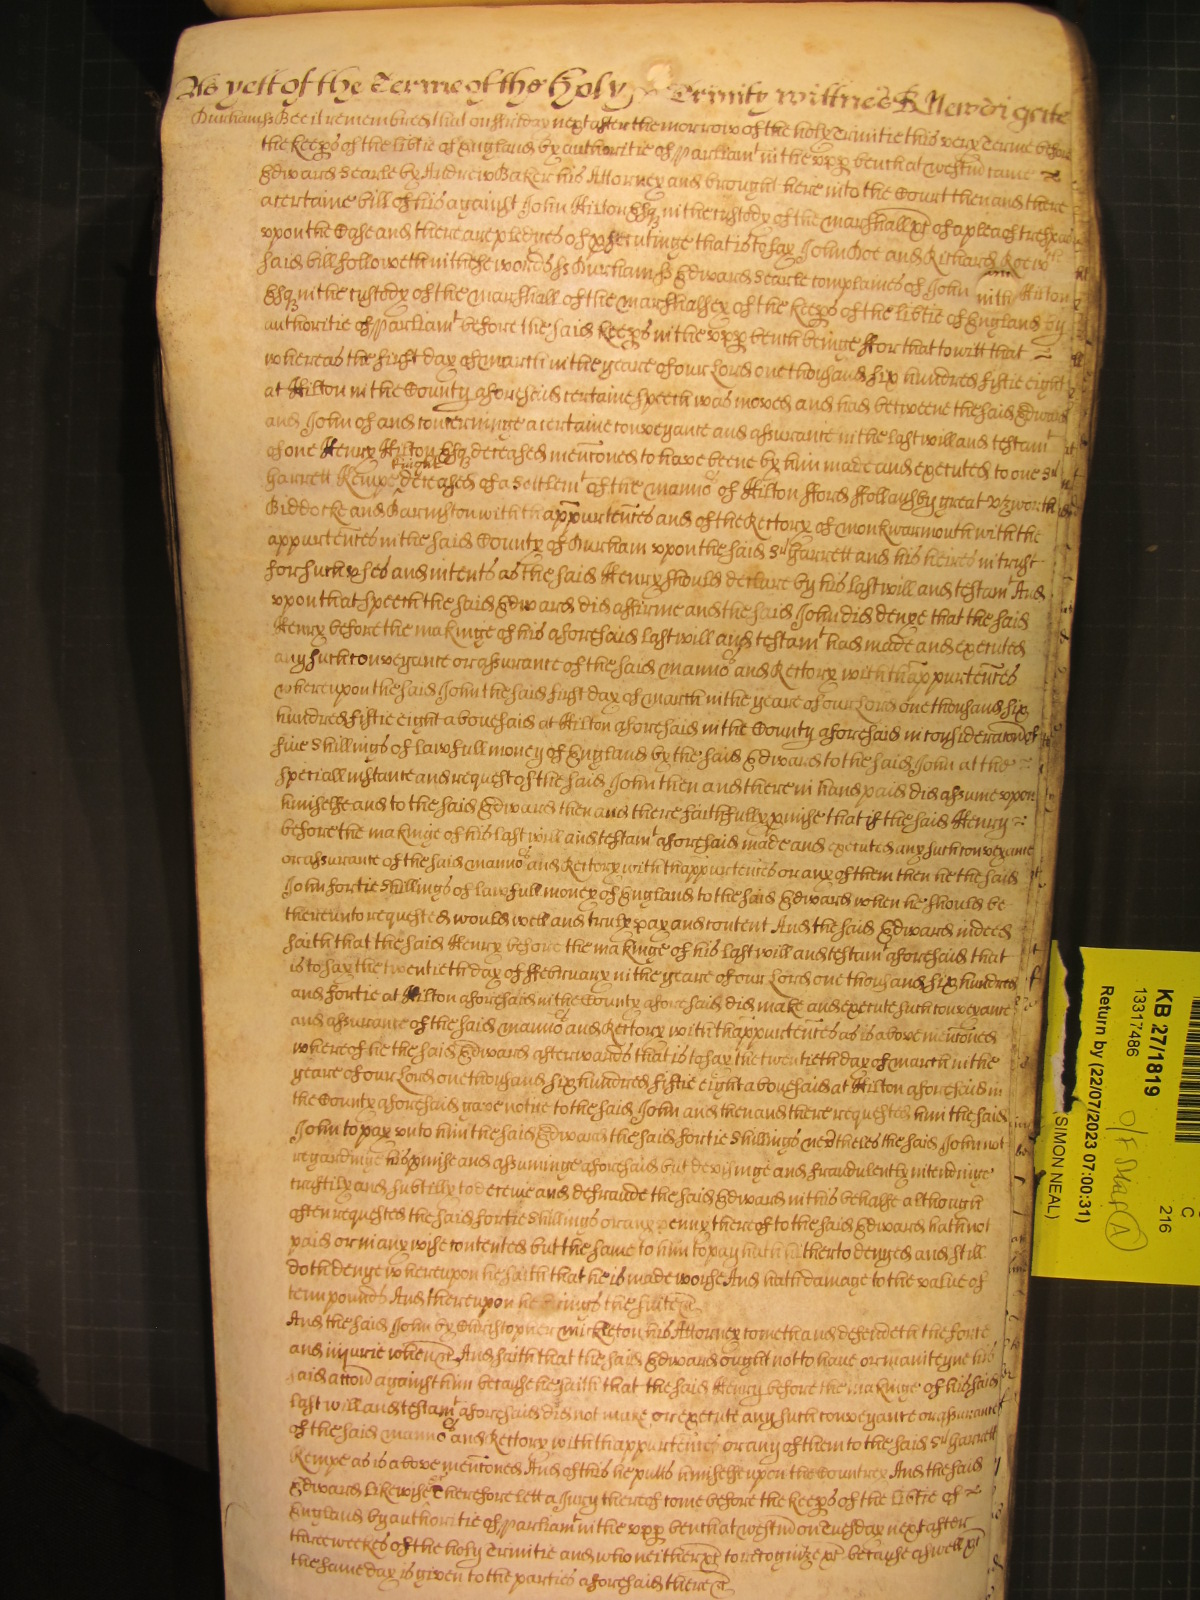 As yett of the Terme of the holy Trinity wittnes R Newdigate
Durham ss Bee it remembred that on ffriday next after the morrow of the holy Trinitie this very Terme before
the keeps of the libtie of England by authoritie of Parliamt in the upp bench at westm came
Edward Searle by Andrew Baker his Attorney and brought here into the Court then and there
a certaine bill of his against John Hilton Esq in the custody of the marshall &c of a plea of trespas
vpon the Case and there are pledges of psecutinge that is to say John Doe and Richard Roe wch
said bill followeth in these words ss Durham ss Edward Searle complaines of John Hilton
Esq in the custody of the marshall of the marshalsey of the keeps of the libtie of England by
authoritie of Parliamt before the said keeps in the vpp bench beinge ffor that to witt that
whereas the first day of march in the yeare of our Lord one thousand six hundred fiftie eight
at Hilton in the County aforesaid certaine speech was moved and had betweene the said Edward
and John of and concerninge a certaine conveyance and assurance in the last will and testamt
of one Henry Hilton Esq deceased menconed to have beene by him made and executed to one Sr
Garrett Kempe knight deceased of a settlemt of the manno of Hilton fford ffollansby great Vsworth
Biddocke and Barmston with thappurtences and of the Rectory of monkwarmouth with the
appurtences in the said County of Durham vpon the said Sr Garrett and his heires in trust
for such vses and intents as the said Henry should declare by his last will and testamt And
vpon that speech the said Edward did affirme and the said John did denye that the said
Henry before the makinge of his aforesaid last will and testamt had made and executed
any such conveyance or assurance of the said manno and Rectory with thappurtences
whereupon the said John the said first day of march in the yeare of our Lord one thousand six
hundred fiftie eight abovesaid at Hilton aforesaid in the County aforesaid in consideracon of
five shillings of lawfull money of England by the said Edward to the said John at the
speciall instance and request of the said John then and there in hand paid did assume vpon
himselfe and to the said Edward then and there faithfully pmise that if the said Henry
before the makinge of his last will and testamt aforesaid made and executed any such conveyance
or assurance of the said manno and Rectory with thappurtences or any of them then he the said
John fortie shillings of lawfull money of England to the said Edward when he should be
thereunto requested would well and truly pay and content And the said Edward indeed
saith that the said Henry before the makinge of his last will and testamt aforesaid that
is to say the twentieth day of ffebruary in the yeare of our Lord one thousand six hundred
and fortie at Hilton aforesaid in the County aforesaid did make and execute such conveyance
and assurance of the said manno and Rectory with thappurtences as is above menconed
whereof he the said Edward afterwards that is to say the twentieth day of march in the
yeare of our Lord one thousand six hundred fiftie eight abovesaid at Hilton aforesaid in
the County aforesaid gave notice to the said John and then and there requested him the said
John to pay vnto him the said Edward the said fortie shillings nevtheles the said John not
regardinge his pmise and assuminge aforesaid but devisinge and fraudulently intendinge
craftily and subtilly to deceive and defraude the said Edward in this behalfe although
often requested the said fortie shillings or any penny thereof to the said Edward hath not
paid or in any wise contented but the same to him to pay hath hitherto denyed and still
doth denye whereupon he saith that he is made worse And hath damage to the value of
tenn pounds And thereupon he brings the suite &c
And the said John by Christopher Mickleton his Attorney cometh and defendeth the force
and iniurie when &c And saith that the said Edward ought not to have or mainteyne his
said accon against him because he saith that the said Henry before the makinge of his said
last will and testamt aforesaid did not make or execute any such conveyance or assurance
of the said manno and Rectory with thappurtences or any of them to the said Sr Garrett
Kempe as is above menconed And of this he putts himselfe upon the Countrey And the said
Edward likewise &c Therefore lett a Jury thereof come before the keeps of the libtie of
England by authoritie of Parliamt in the vpp bench at westm on Tuesday next after
three weekes of the holy Trinitie and who neither &c to recognize &c because aswell &c
the same day is given to the parties aforesaid there &c
KB 27/1819
13317486
Return by (22/07/2023 07:00:31)
(SIMON NEAL)
C
216
O/F Map A